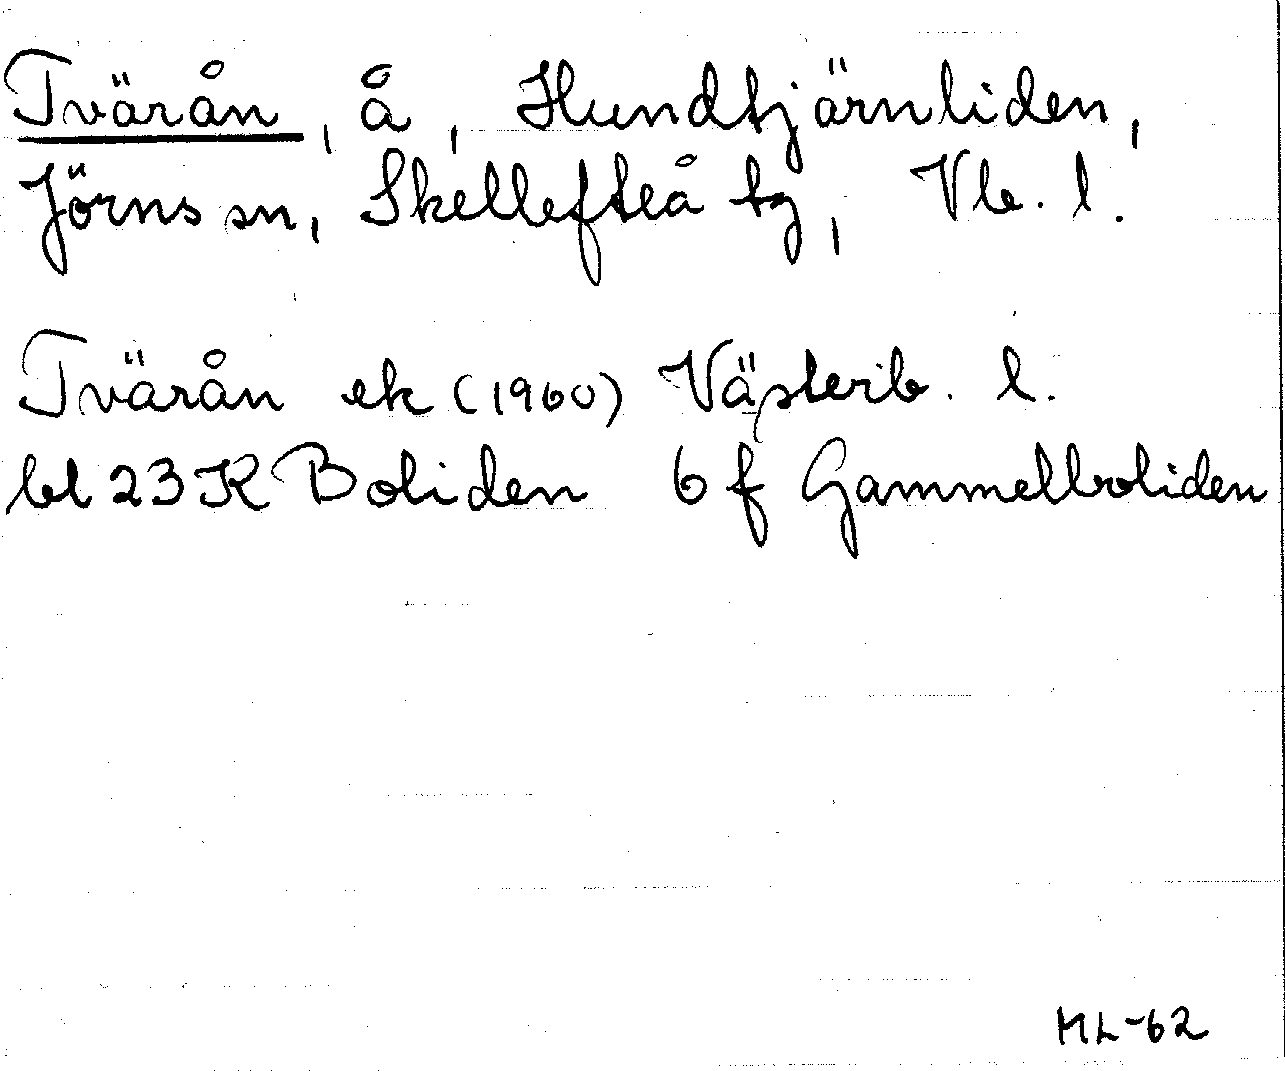 Tvärån, å, Hundtjärnliden,
Jörns sn, Skellefteå tg, Vb. l.
Tvärån ek (1960) Västerb. l.
bl 23 K Boliden 6 f Gammelboliden
ML-62